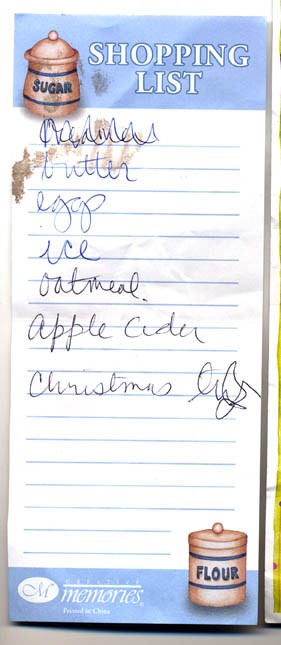 SUGAR
SHOPPING
LIST
butter
eggs
ice
oatmeal.
Apple Cider
Christmas
FLOUR
M
CREATIVE
memories®
Printed in China